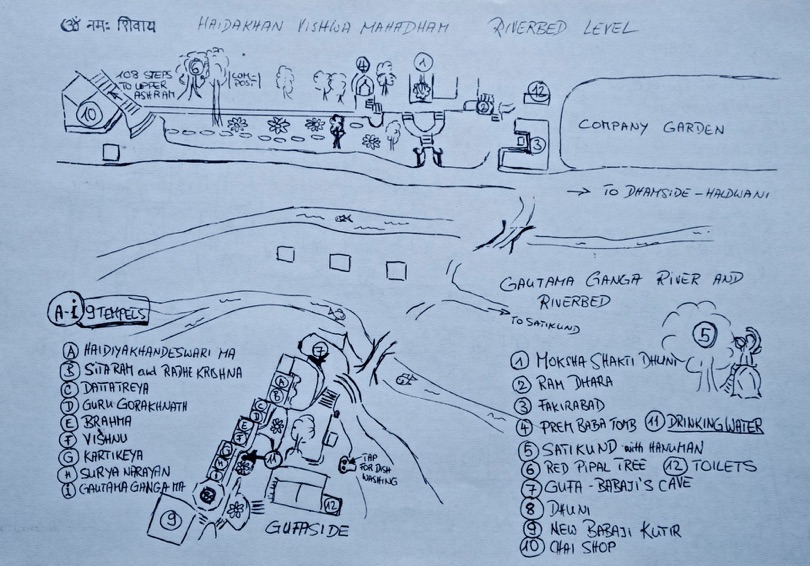 ॐ नमः शिवाय HAIDAKHAN VISHWA MAHADHAM RIVERBED LEVEL
108 STEPS
TO UPPER
ASHRAM
6
COM-
POST
4
1
2
12
10
3
COMPANY GARDEN
→ TO DHAMSIDE - HALDWANI
GAUTAMA GANGA RIVER AND
RIVERBED
TO SATIKUND
5
A-i 9 TEMPELS
A HAIDIYAKHANDESWARI MA
B SITARAM and RADHE KRISHNA
C DATTATREYA
D GURU GORAKHNATH
E BRAHMA
F VISHNU
G KARTIKEYA
H SURYA NARAYAN
i GAUTAMA GANGA MA
7
A
B
C
D
E
F
G
H
TAP
FOR DISH
WASHING
12
9
GUFASIDE
1 MOKSHA SHAKTI DHUNI
2 RAM DHARA
3 FAKIRABAD
4 PREM BABA TOMB 11 DRINKING WATER
5 SATIKUND with HANUMAN
6 RED PIPAL TREE 12 TOILETS
7 GUFA - BABAJI'S CAVE
8 DHUNI
9 NEW BABAJI KUTIR
10 CHAI SHOP